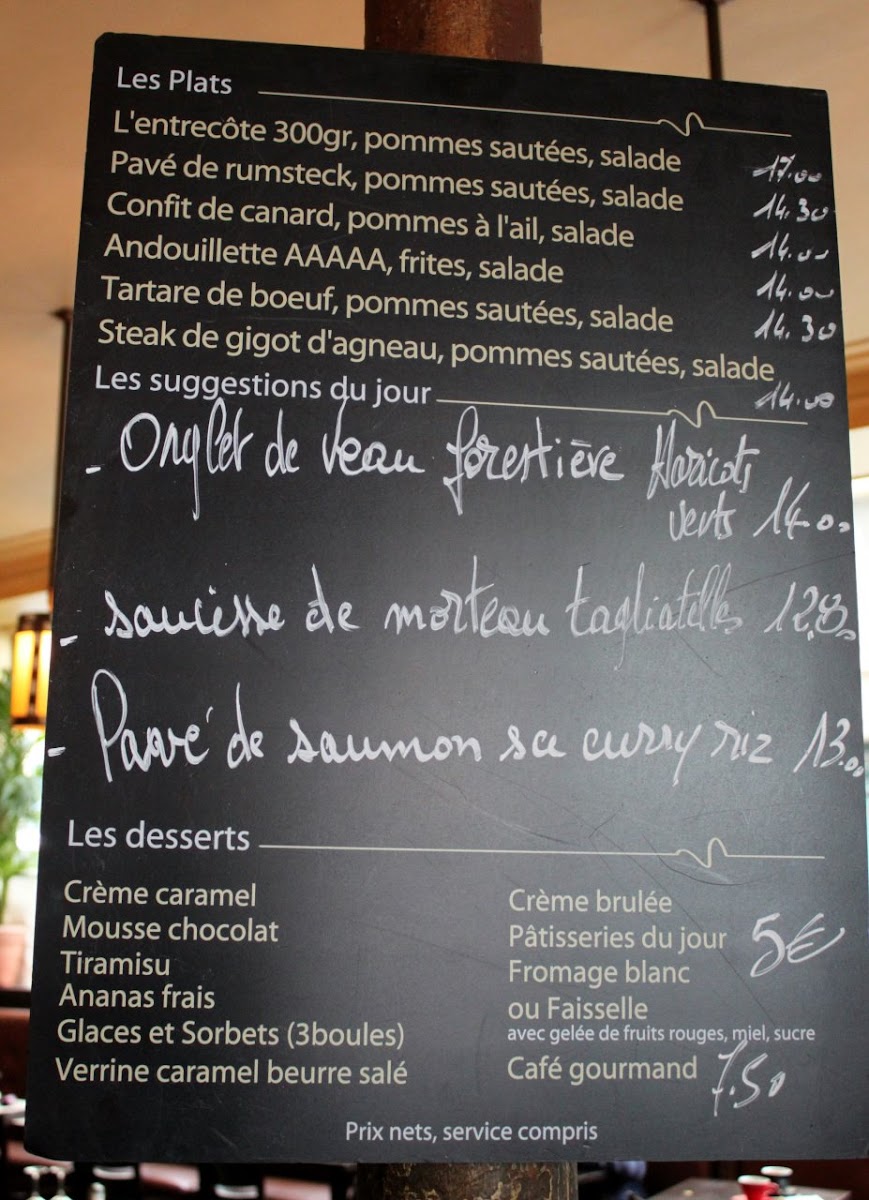 Les Plats
L'entrecôte 300gr, pommes sautées, salade 17.00
Pavé de rumsteck, pommes sautées, salade 14.30
Confit de canard, pommes à l'ail, salade 14.00
Andouillette AAAAA, frites, salade 14.00
Tartare de boeuf, pommes sautées, salade 14.30
Steak de gigot d'agneau, pommes sautées, salade 14.00
Les suggestions du jour
- Onglet de veau forestière Haricots
verts 14.00
- saucisse de morteau tagliatelles
- Pavé de saumon curry riz 13.00
Les desserts
Crème caramel
Mousse chocolat
Tiramisu
Ananas frais
Glaces et Sorbets (3boules)
Verrine caramel beurre salé
Crème brulée
Pâtisseries du jour 5€
Fromage blanc
ou Faisselle
avec gelée de fruits rouges, miel, sucre
Café gourmand 7.50
Prix nets, service compris